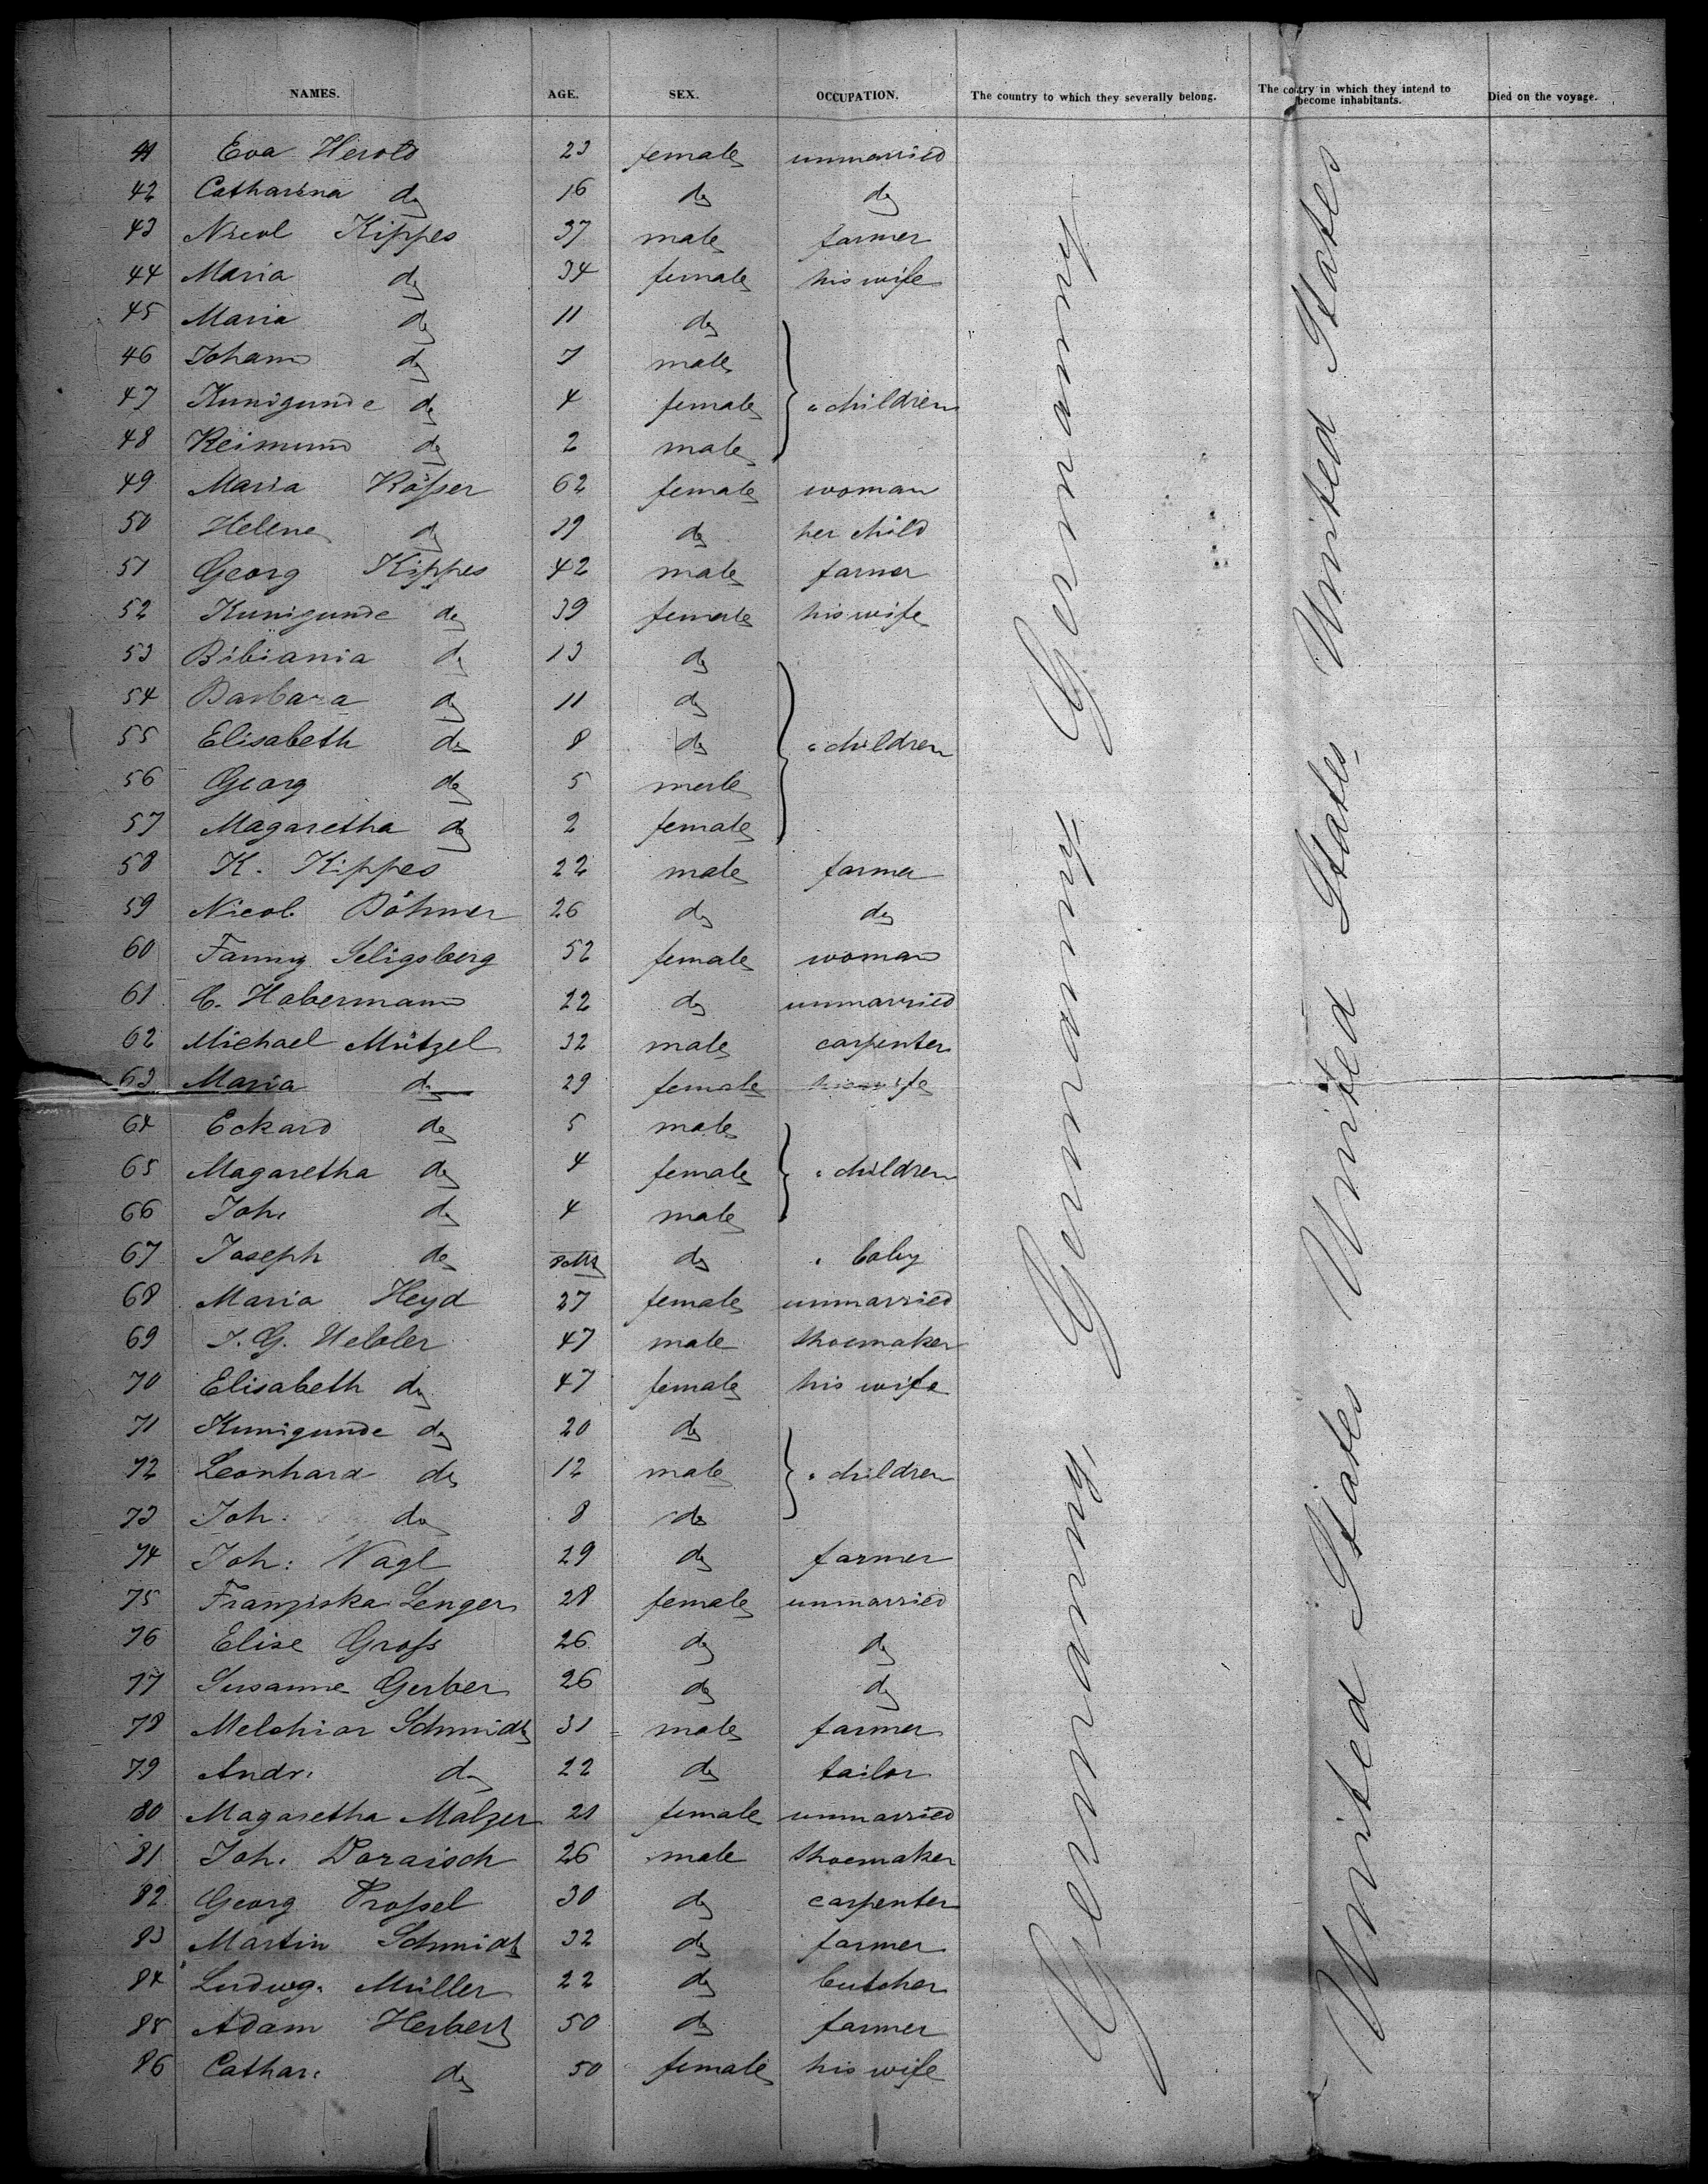 NAMES. AGE. SEX. OCCUPATION. The country to which they severally belong. The country in which they intend to become inhabitants. Died on the voyage.
41 Eva Herold 23 female unmarried
42 Catharina do 16 do do
43 Nicol Kippes 37 male farmer
44 Maria do 34 female his wife
45 Maria do 11 do
46 Johann do 7 male
47 Kunigunde do 4 female " children
48 Reimund do 2 male
49 Maria Rößer 62 female woman
50 Helene do 29 do her child
51 Georg Kippes 42 male farmer
52 Kunigunde do 39 female his wife
53 Bibiania do 13 do
54 Barbara do 11 do
55 Elisabeth do 8 do " children
56 Georg do 5 male
57 Magaretha do 2 female
58 K. Kippes 22 male farmer
59 Nicol. Böhmer 26 do do
60 Fanny Seligsberg 52 female woman
61 C. Habermann 22 do unmarried
62 Michael Mützel 32 male carpenter
63 Maria do 29 female his wife
64 Eckard do 5 male
65 Magaretha do 4 female " children
66 Joh. do 4 male
67 Joseph do do " baby
68 Maria Heyd 27 female unmarried
69 J. G. 47 male shoemaker
70 Elisabeth do 47 female his wife
71 Kunigunde do 20 do
72 Leonhard do 12 male " children
73 Joh: do 8 do
74 Joh: Nagl 29 do farmer
75 Franziska Lenger 28 female unmarried
76 Elise Groß 26 do do
77 Susanne Gerber 26 do do
78 Melchior Schmidt 31 male farmer
79 Andr. do 22 do tailor
80 Magaretha Malzer 21 female unmarried
81 Joh. Doraisch 26 male shoemaker
82 Georg Proßel 30 do carpenter
83 Martin Schmidt 32 do farmer
84 Ludwg. Müller 22 do butcher
85 Adam Herbert 50 do farmer
86 Cathar. do 50 female his wife
Germany, Germany, Germany
United States United States, United States